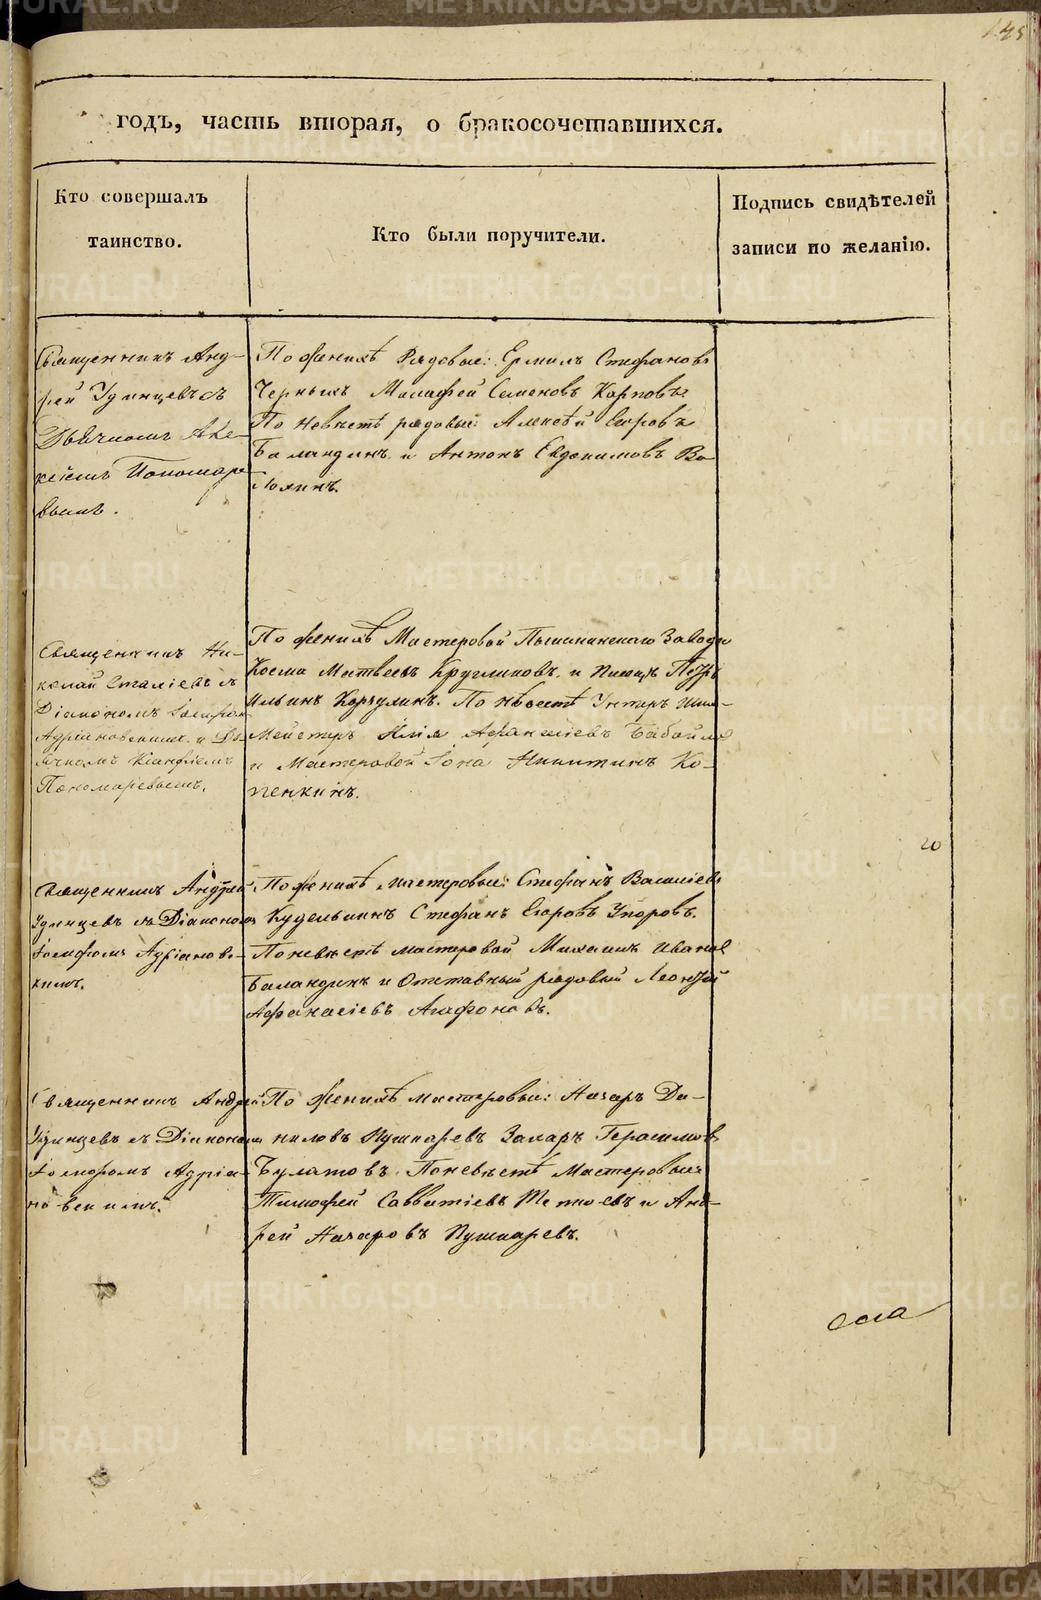 145
годъ, часть вторая, о бракосочетавшихся.
Кто совершалъ
таинство.
Кто были поручители.
Подпись свидѣтелей
записи по желанію.
Священникъ Анд-
рей Удинцевъ съ
Дьячкомъ Але-
ксіемъ Пономаре
вымъ.
По женихѣ Рядовые: Ермилъ Стефановъ
Черныхъ Малафей Семеновъ Карповъ
По невѣстѣ рядовый Алексѣй Егоровъ
Баландинъ и Антонъ Евдокимовъ Во
Священникъ Ни-
колай Сталіевъ съ
Діакономъ Іосифомъ
Адріановскимъ и Дь-
ячкомъ
Пономаревымъ.
По женихѣ Мастеровой Пышминскаго Завода
Косма Матвеевъ Кругликовъ и Писецъ Петръ
Ильинъ Корзулинъ. По невестѣ Унтеръ Ших-
Мейстеръ Илія Афанасіевъ Бабайло
и Мастеровой Іона Никитинъ Ко-
пенкинъ.
20
Священникъ Андрей
Удинцевъ съ Діакономъ
Іосифомъ Адріановс-
кимъ.
По женихѣ мастеровые: Стефанъ Василіевъ
Куделькинъ Стефанъ Егоровъ Упоровъ.
По невѣстѣ мастеровой Михаилъ Иванов
Баландинъ и Отставный рядовый Леонтій
Афанасіевъ Агафоновъ.
Священникъ Андрей
Удинцевъ съ Діакономъ
Іосифомъ Адріа-
новскимъ.
По женихѣ мастеровые: Назаръ Да-
ниловъ Пушкаревъ Захаръ Герасимовъ
Булатовъ. По невѣстѣ Мастеровые
Тимофей Савватіевъ и Анд-
рей Назаровъ Пушкаревъ.